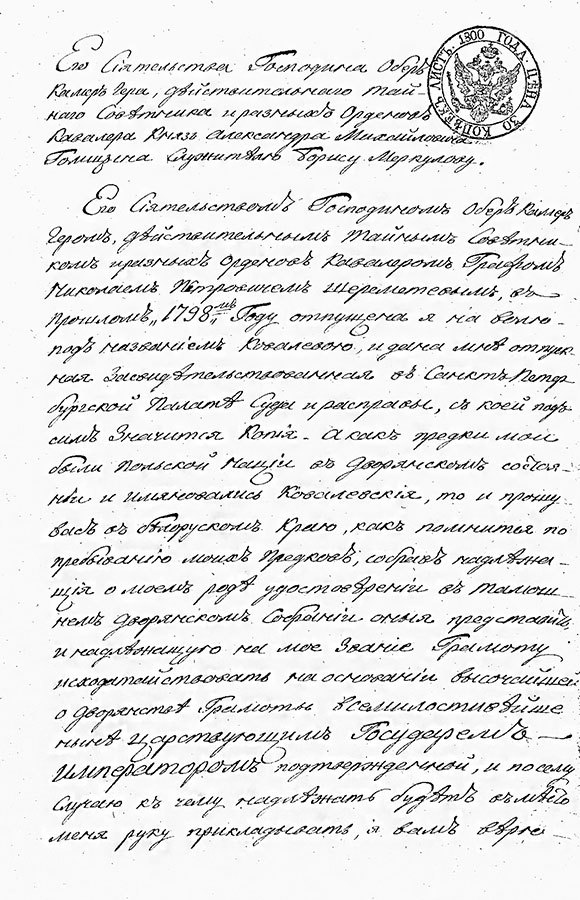 ЛИСТЪ. 1800 ГОДА. ЦѢНА 30 КОПѢЕКЪ
Его Сіятельства Господина Оберъ
Камеръ Гера, дѣйствительнаго тай-
наго Совѣтника и разныхъ Орденовъ
Кавалера Князь Александра Михайловича
Голицына Служителю Борису Меркулову.
Его Сіятельствомъ Господиномъ Оберъ Камеръ
Геромъ, дѣйствительнымъ тайнымъ Совѣтни-
комъ и разныхъ Орденовъ Кавалеромъ Графомъ
Николаемъ Петровичемъ Шереметевымъ, въ
прошломъ „1798„мъ Году отпущена я на волю
подъ названіемъ Ковалевою, и дана мнѣ отпуск-
ная Засвидѣтельствованная въ Санктъ Петер-
бургской Палатѣ Суда и расправы, съ коей подъ
симъ Значится Копія. А какъ предки мои
были Польской націи въ Дворянскомъ состоя-
ніи и имяновались Ковалевскія, то и прошу
васъ въ Бѣлорускомъ Краю, какъ помнится по
пребыванію моихъ Предковъ, собравъ надлѣжа-
щія о моемъ родѣ удостовѣреніи въ тамош-
немъ дворянскомъ Собраніи оныя представить
и надлѣжащую на мое Званіе Грамоту
исходатайствовать на основаніи высочайшей
о дворянствѣ Грамоты всемилостивѣйше
нынѣ царствующимъ Государемъ
Императоромъ подтвержденной, и по сему
Случаю къ чему надлѣжать будѣтъ вмѣсто
меня руку прикладывать, я вамъ вѣрю